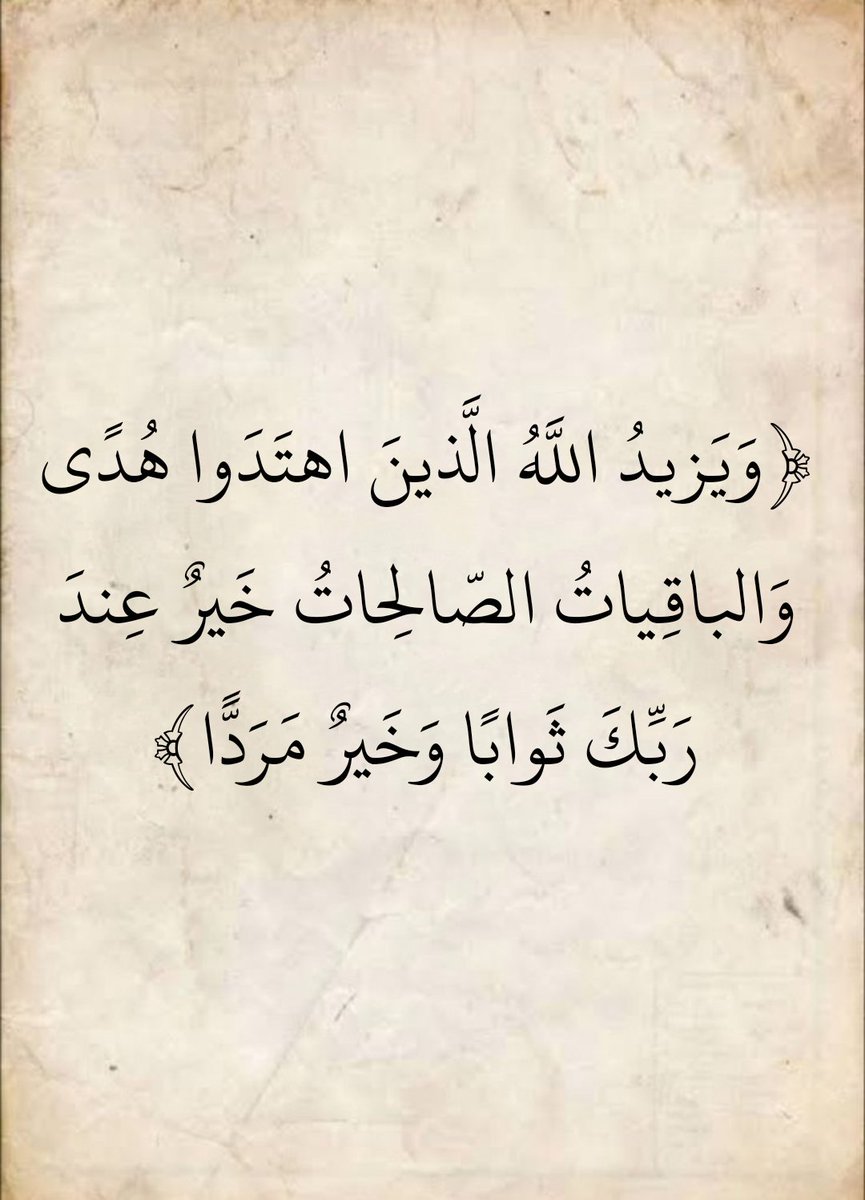 ﴿وَيَزيدُ اللَّهُ الَّذينَ اهتَدَوا هُدًى
وَالباقِياتُ الصّالِحاتُ خَيرٌ عِندَ
رَبِّكَ ثَوابًا وَخَيرٌ مَرَدًّا﴾